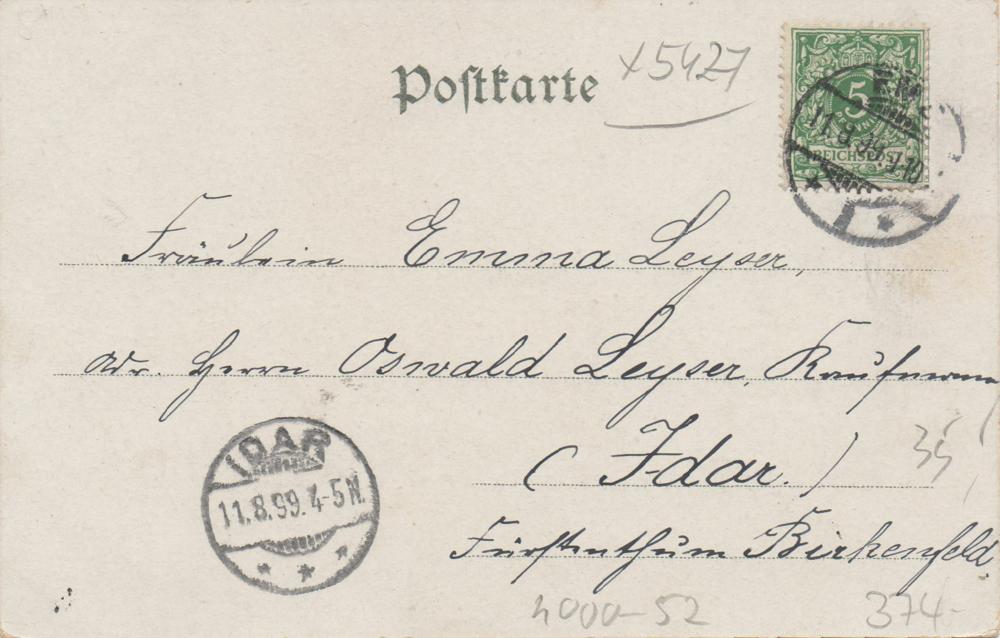 Postkarte
x5427
5
REICHSPOST
11.8.99.
Fräulein Emma Leyser,
adr. Herrn Oswald Leyser, Kaufmann
(Idar.)
Fürstenthum Birkenfeld.
IDAR
11.8.99.4-5N.
4000-52
374-